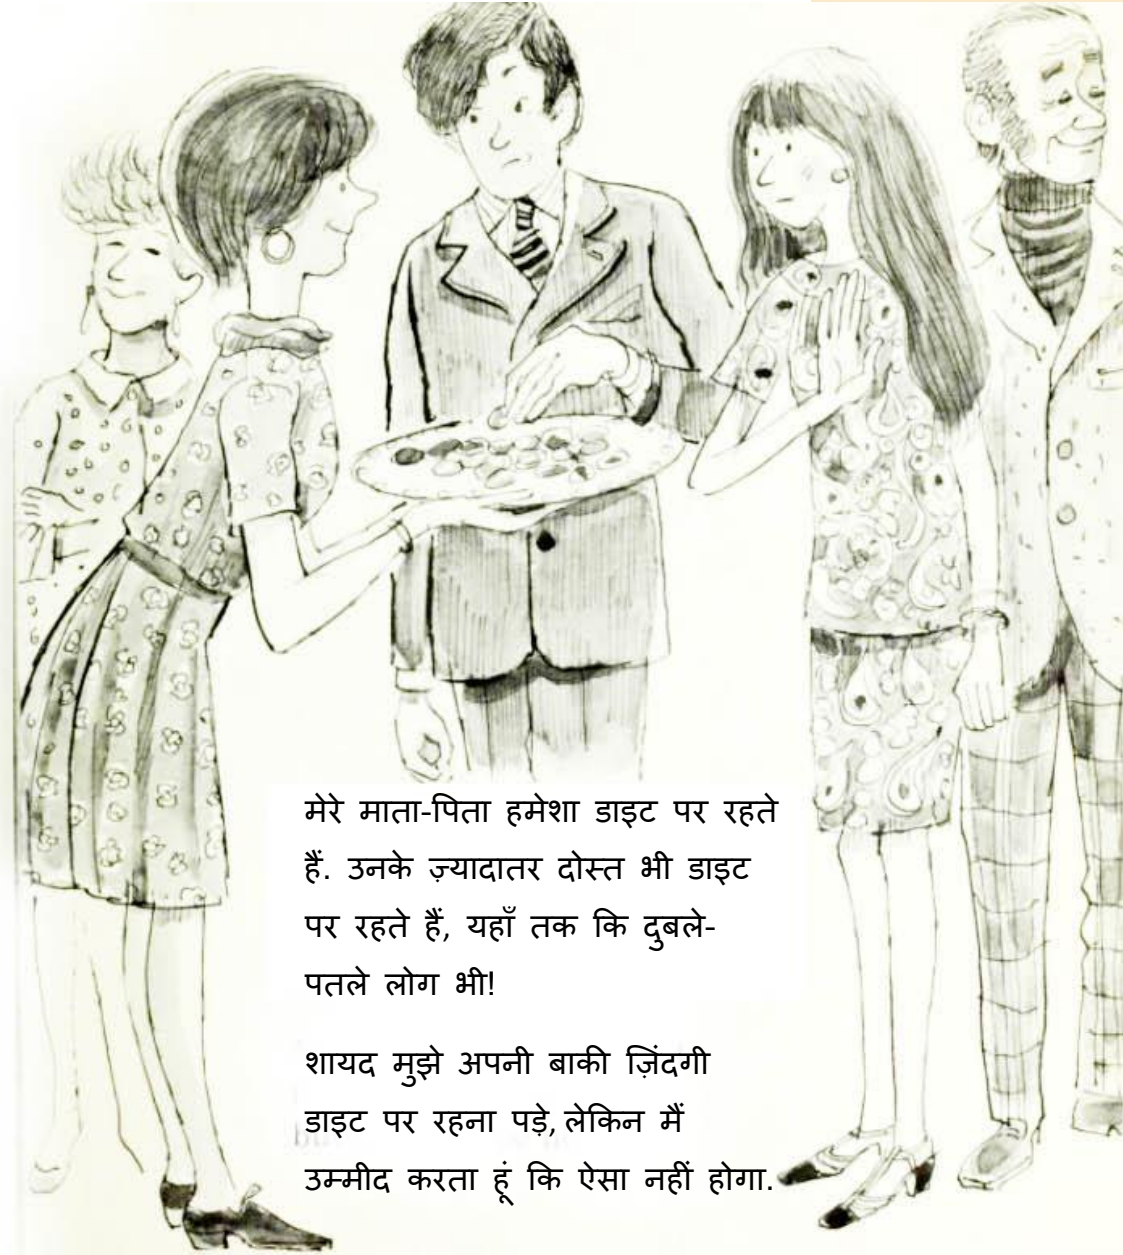 मेरे माता-पिता हमेशा डाइट पर रहते
हैं. उनके ज़्यादातर दोस्त भी डाइट
पर रहते हैं, यहाँ तक कि दुबले-
पतले लोग भी!
शायद मुझे अपनी बाकी ज़िंदगी
डाइट पर रहना पड़े, लेकिन मैं
उम्मीद करता हूं कि ऐसा नहीं होगा.